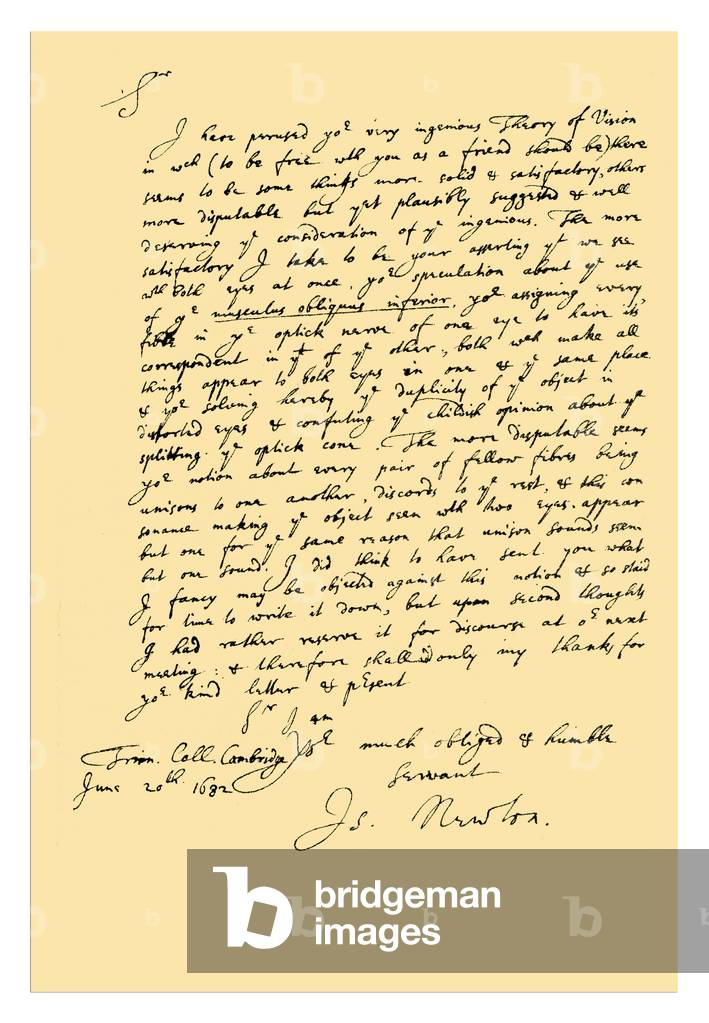 Sr
I have perused yor very ingenious Theory of Vision
in wch (to be free wth you as a friend should be) there
seems to be some things more solid & satisfactory, others
more disputable but yet plausibly suggested & well
deserving ye consideration of ye ingenious. The more
satisfactory I take to be your asserting yt we see
wth both eyes at once, yor speculation about ye use
of ye musculus obliquus inferior, yor assigning every
fibre in ye optick nerve of one eye to have its
correspondent in yt of ye other, both wch make all
things appear to both eyes in one & ye same place
& yor solving hereby ye duplicity of ye object in
distorted eyes & confuting ye childish opinion about ye
splitting ye optick cone. The more disputable seems
yor notion about every pair of fellow fibres being
unisons to one another, discords to ye rest, & this con
sonance making ye object seen wth two eyes appear
but one for ye same reason that unison sounds seem
but one sound. I did think to have sent you what
I fancy may be objected against this notion & so staid
for time to write it down, but upon second thoughts
I had rather reserve it for discourse at or next
meeting: & therefore shall add only my thanks for
yor kind letter & present
Sr I am
Yor much obliged & humble
Servant
Trin. Coll. Cambridge
June 20th 1682
Is. Newton.
b bridgeman
images